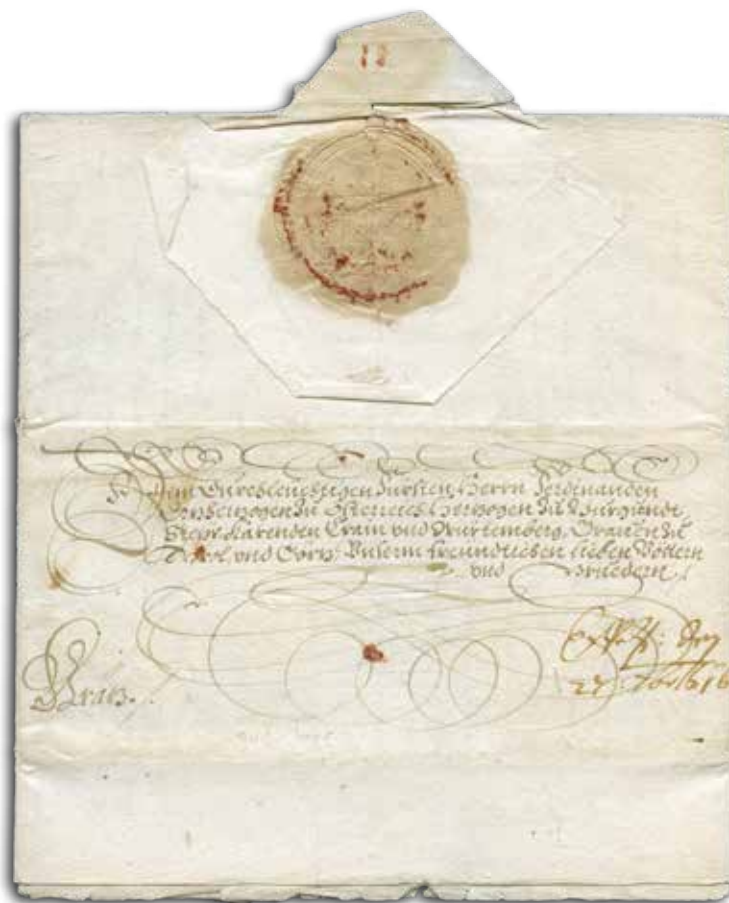 Dem Durchleuchtigen Fursten, Herrn Ferdinanden
Ertzhertzogen zu Osterreich Hertzogen zu Burgundt
Steyr Kärnden Crain und Wurtemberg, Graven zu
Tyrol und Görtz, Unserm freundtlichen lieben Vettern
und Bruedern
Grätz.